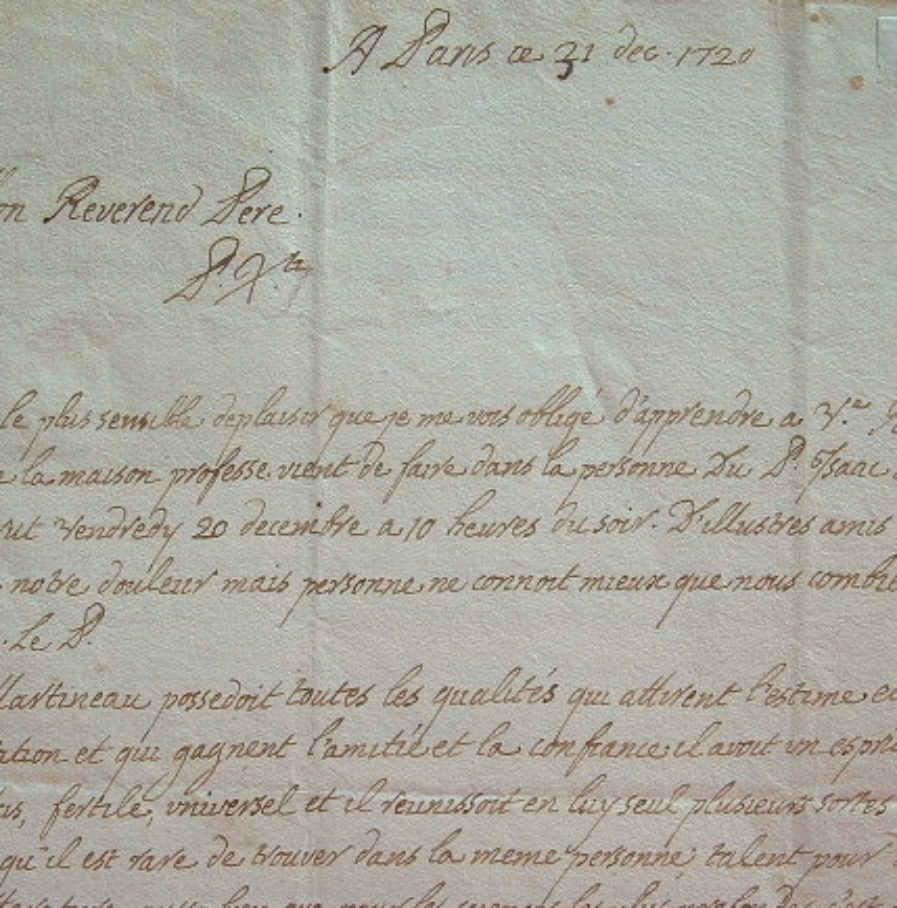 A Paris ce 31 dec. 1720
on Reverend Pere.
P. X.ti
le plus sensible deplaisir que je me vois obligé d'apprendre a V.re
la maison professe vient de faire dans la personne Du P. Isaac
rut vendredy 20 decembre a 10 heures du soir. D'illustres amis
notre douleur mais personne ne connoit mieux que nous combie
. Le P.
Martineau possedoit toutes les qualités qui attirent l'estime et
ation et qui gagnent l'amitié et la confiance il avoit vn esprit
is, fertile, vniversel et il reunissoit en luy seul plusieurs sortes
qu'il est rare de trouver dans la meme personne; talent pour